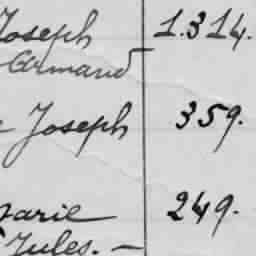 Joseph 1.314.
Armand
Joseph 359.
Marie 249.
Jules. —